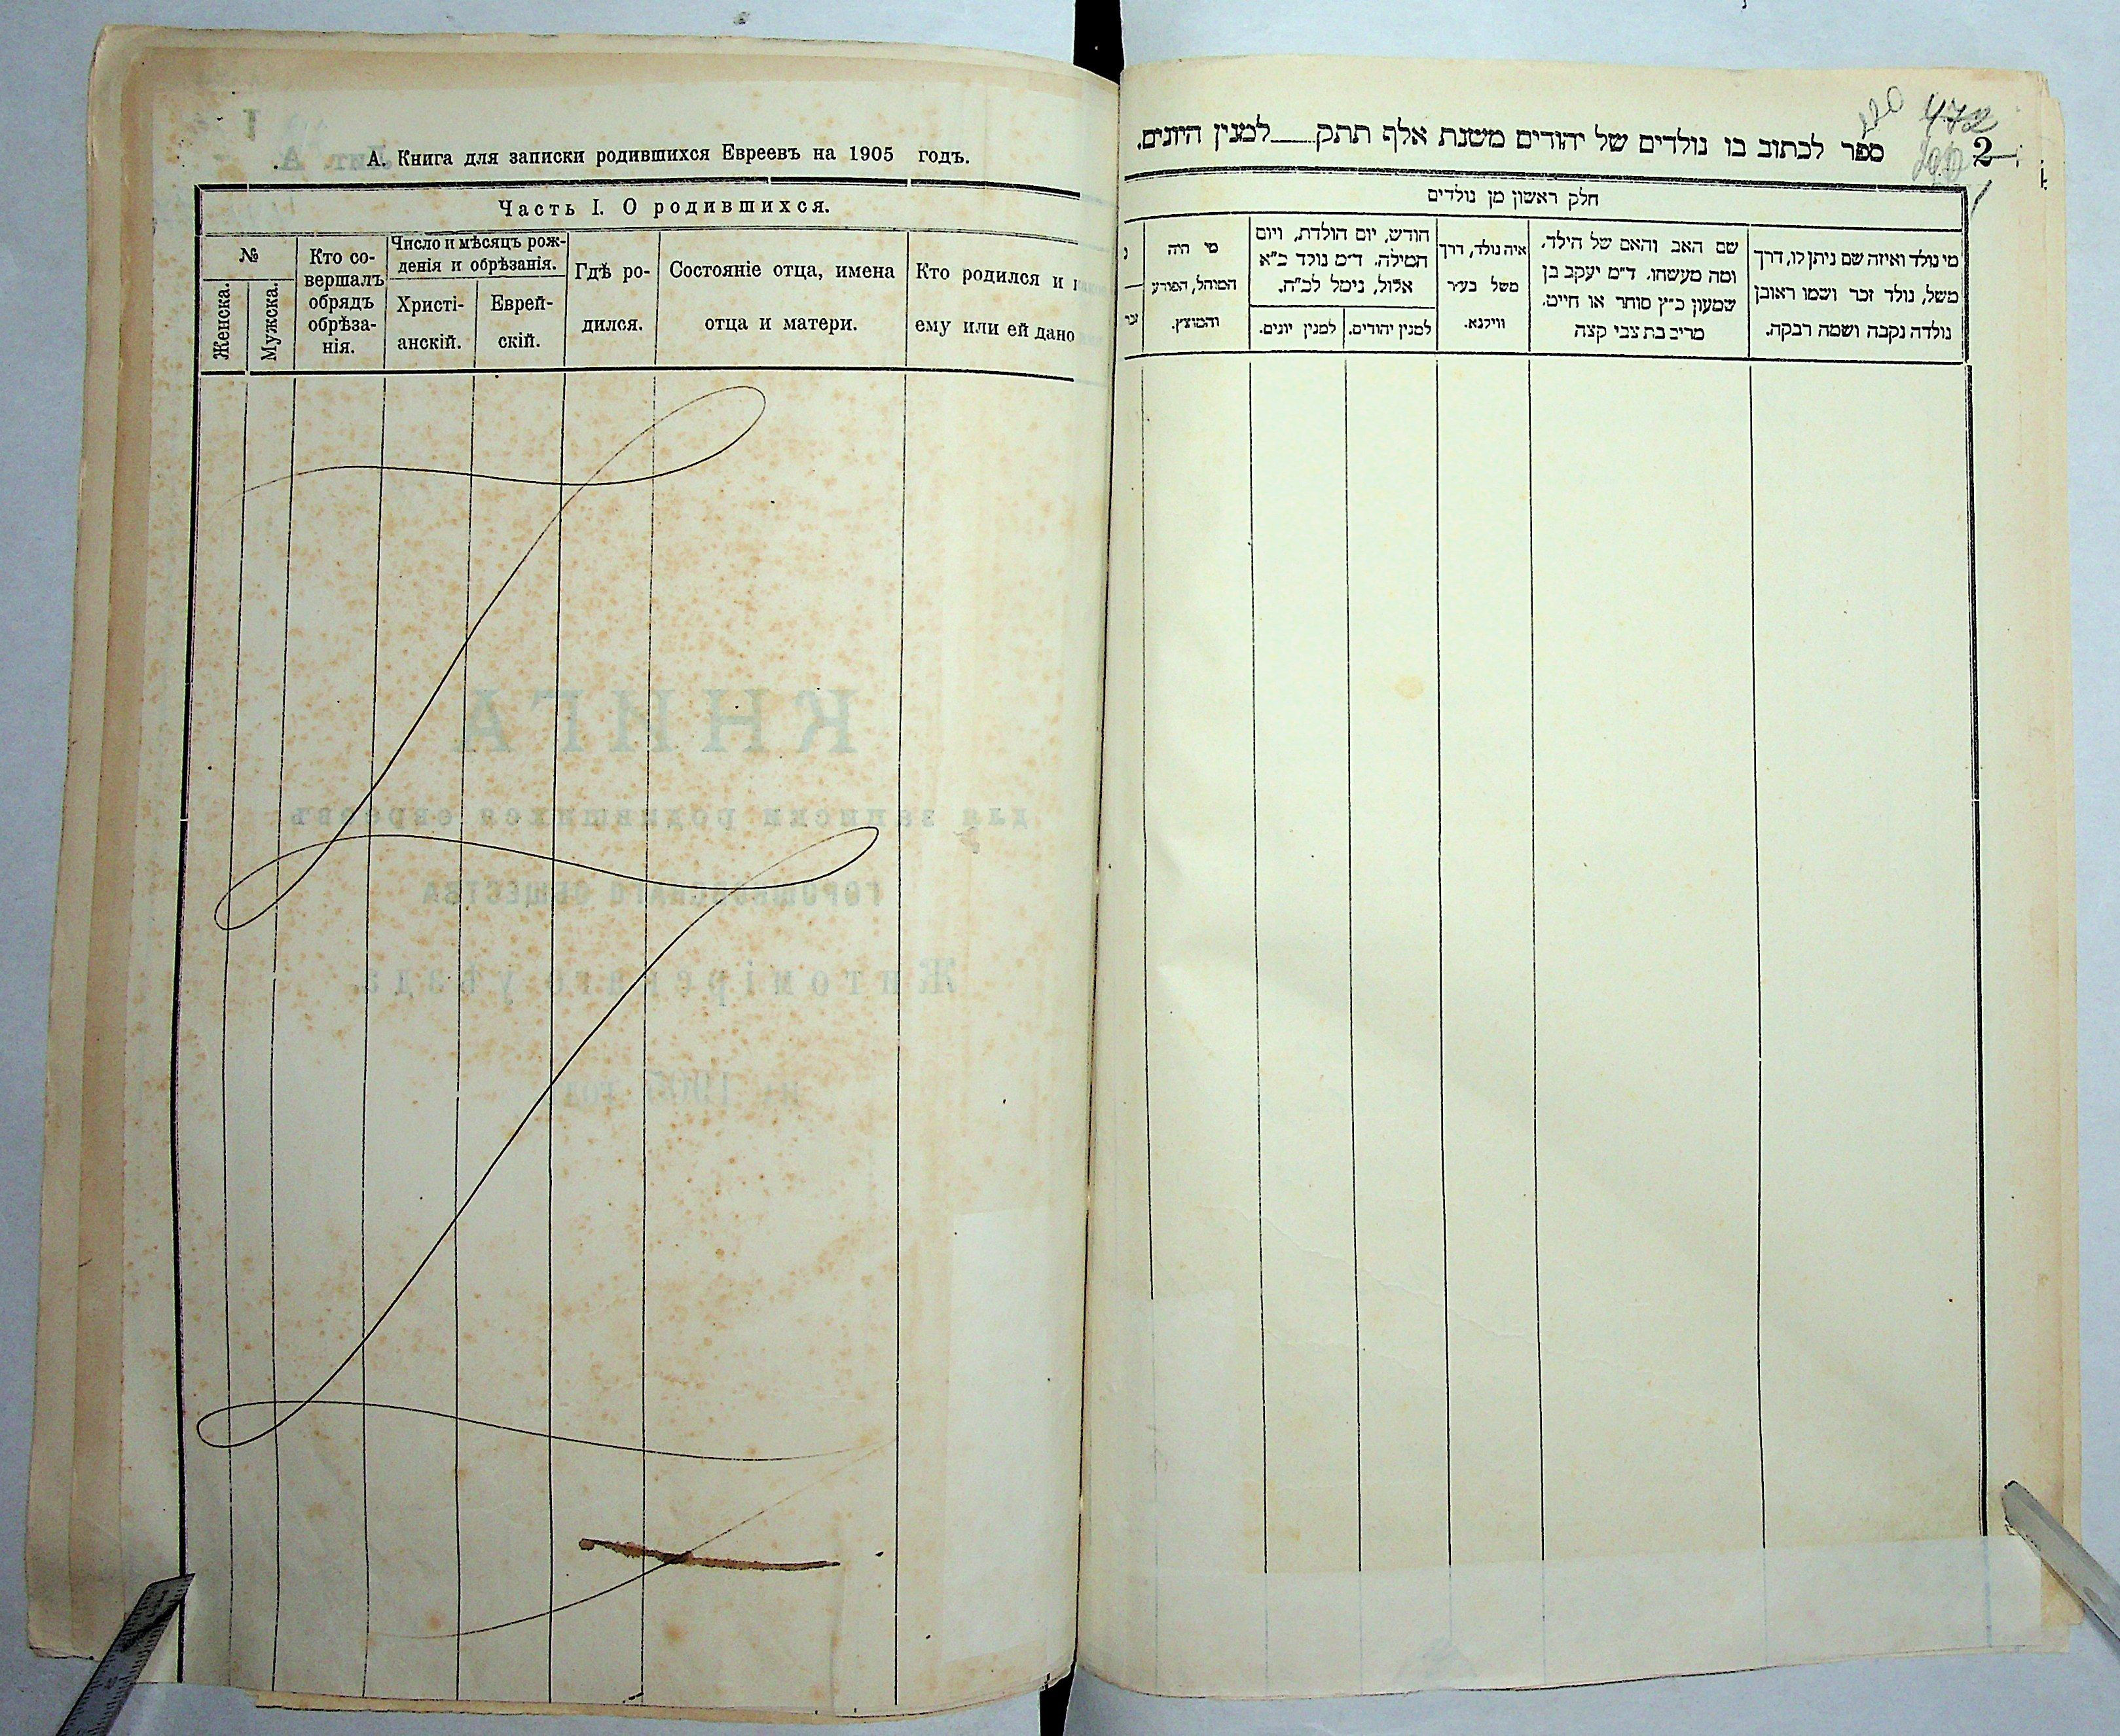 А. Книга для записки родившихся Евреевъ на 1905 годъ.
Часть I. О родившихся.
№
Женска.
Мужска.
Кто со-
вершалъ
обрядъ
обрѣза-
нія.
Число и мѣсяцъ рож-
денія и обрѣзанія.
Христі-
анскій.
Еврей-
скій.
Гдѣ ро-
дился.
Состояніе отца, имена
отца и матери.
Кто родился и
ему или ей дано
КНИГА
для записки родившихся евреевъ
ГОРОШКОВСКАГО ОБЩЕСТВА
Житомірскаго уѣзда
на 1905 годъ
472
2
ספר לכתוב בו נולדים של יהודים משנת אלף תתק___למנין היונים.
חלק ראשון מן נולדים
מי נולד ואיזה שם ניתן לו, דרך
משל, נולד זכר ושמו ראובן
נולדה נקבה ושמה רבקה.
שם האב והאם של הילד,
ומה מעשהו. ד״מ יעקב בן
שמעון כ״ץ סוחר או חייט.
מרים בת צבי קצה
איה נולד, דרך
משל בעיר
ווילנא.
חודש, יום הולדת, ויום
המילה. ד״מ נולד כ״א
אלול, נימל לכ״ח.
למנין יהודים.
למנין יונים.
מי היה
המוהל, הפורע
והמוצץ.